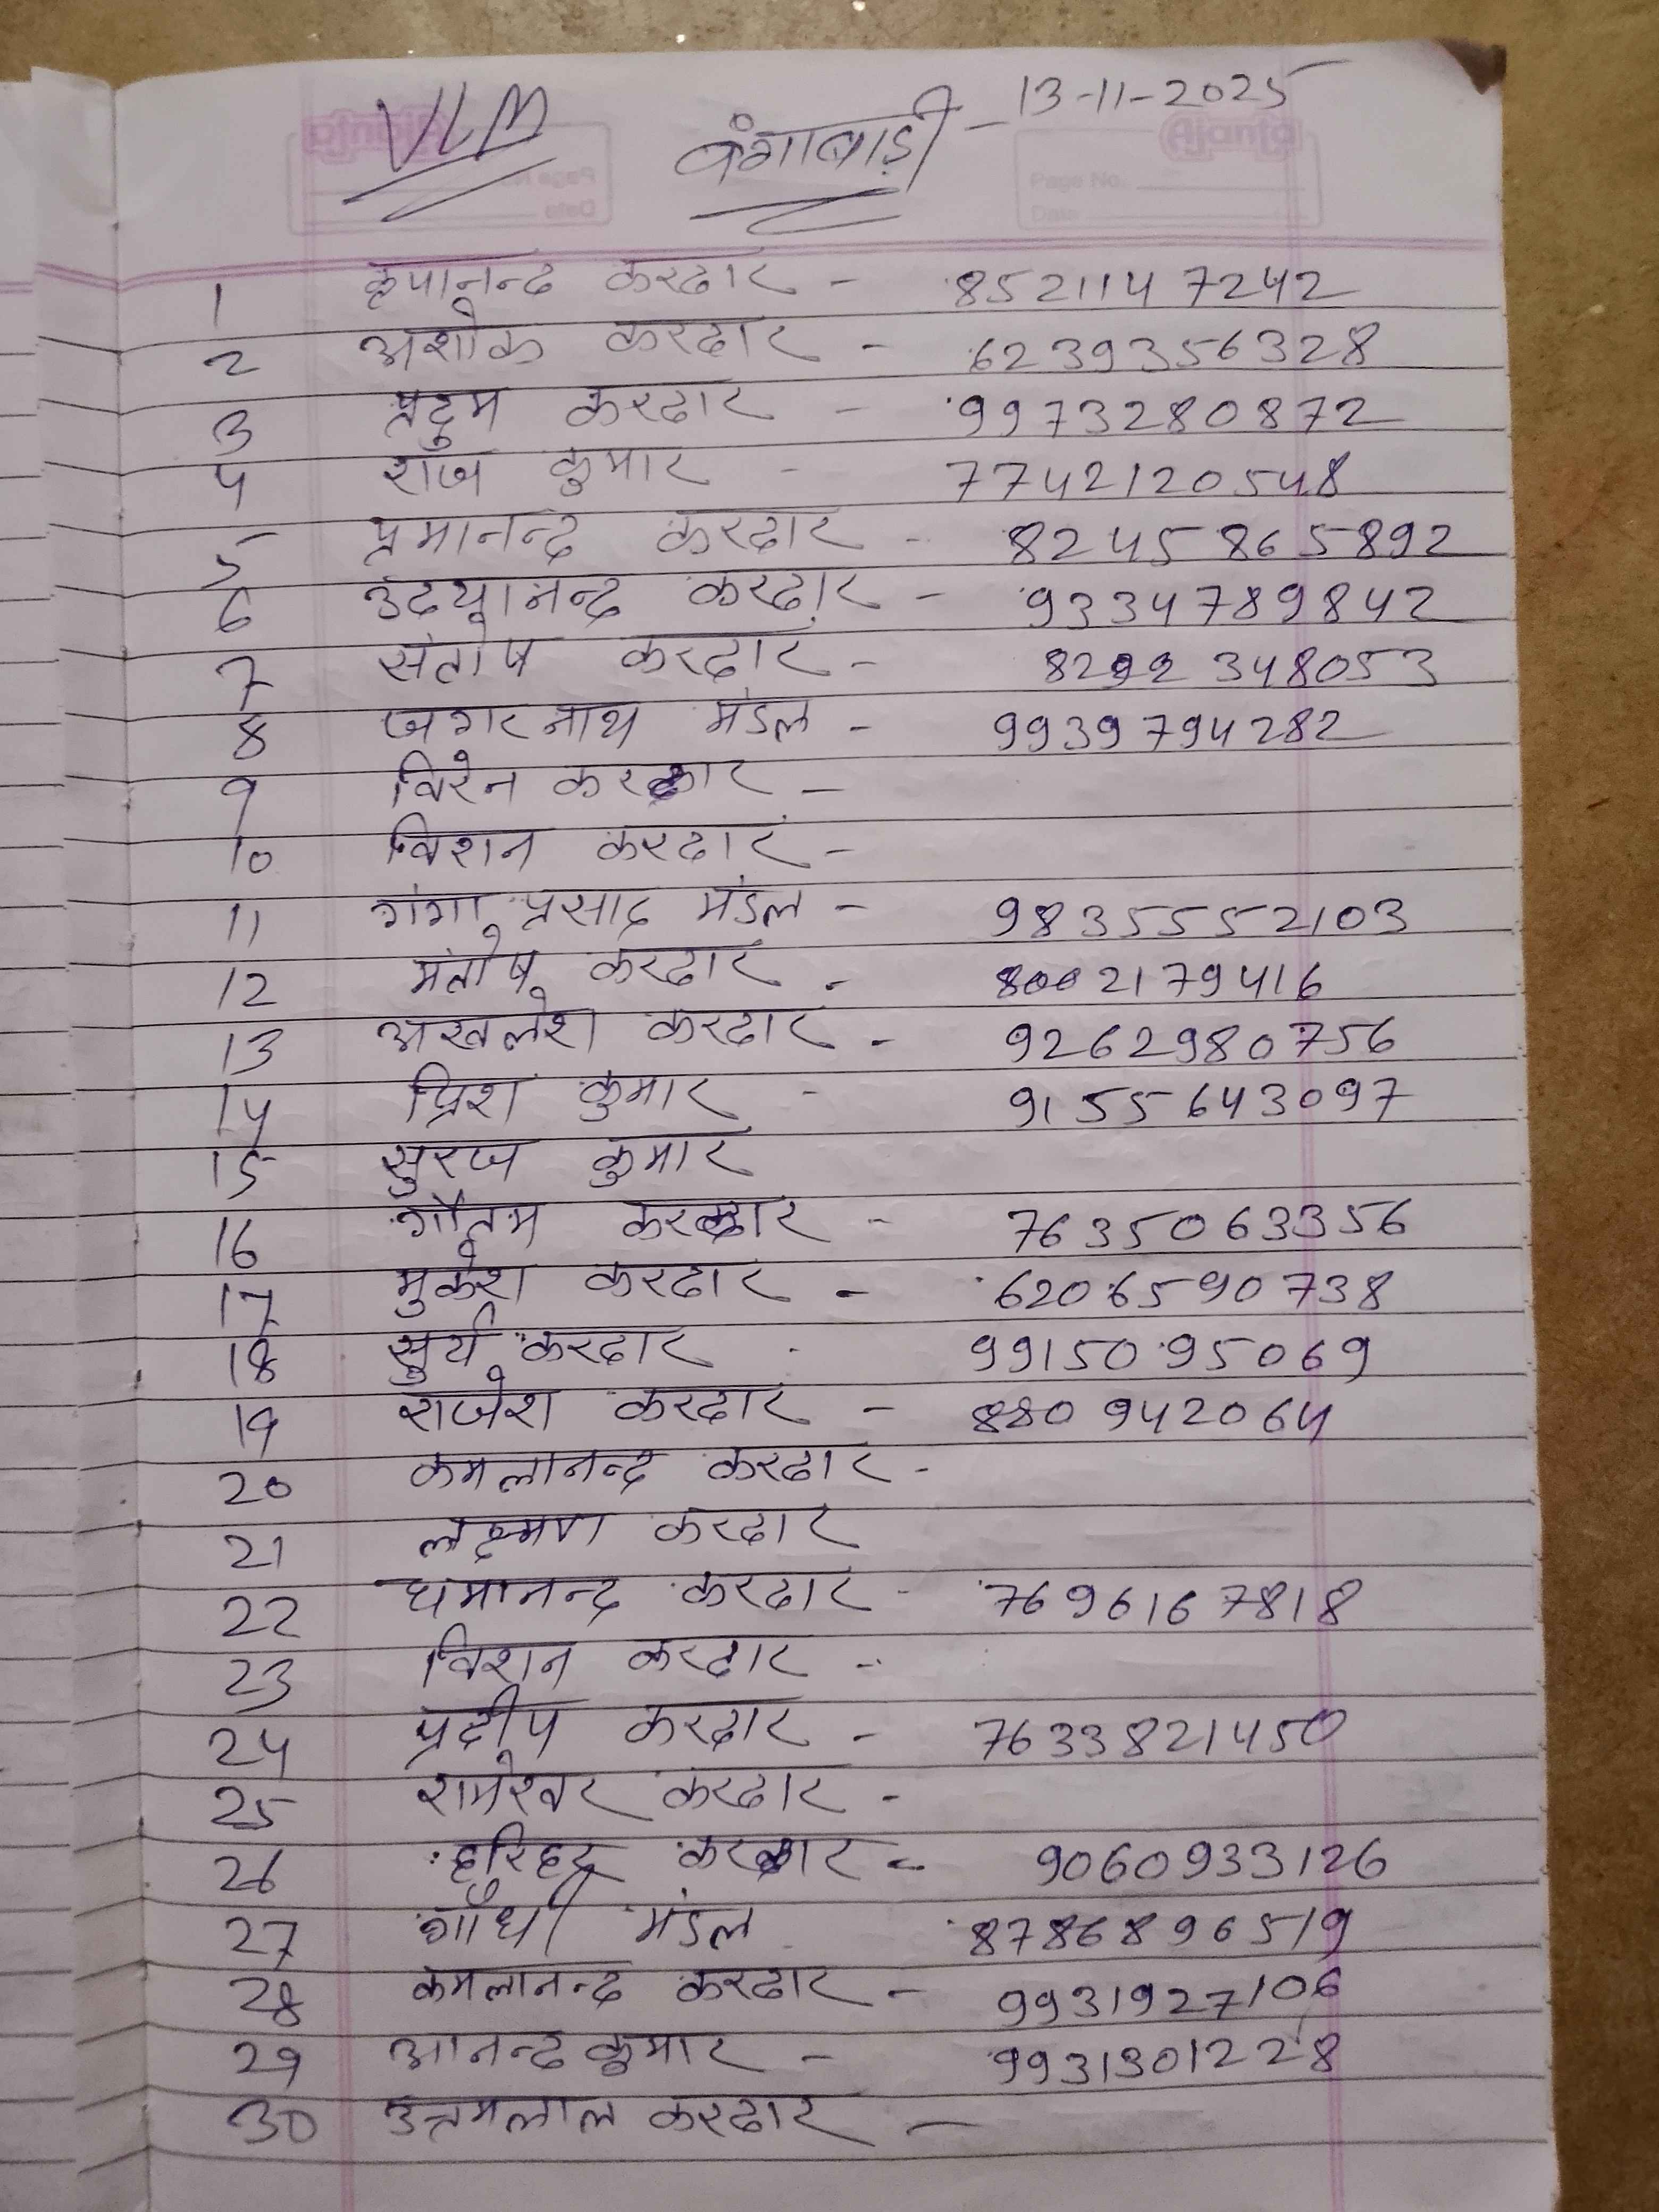 VLM बंगाबाड़ी - 13-11-2025
Ajanta
Page No.
Date
1 कृपानन्द करदार - 8521147242
2 अशोक करदार - 6239356328
3 प्रदुम करदार - 9973280872
4 राज कुमार - 7742120548
5 प्रमानन्द करदार - 8245865892
6 उदयानन्द करदार - 9334789842
7 संतोष करदार - 8292348053
8 जगरनाथ मंडल - 9939794282
9 विरेन करदार -
10 विशन करदार -
11 गंगा प्रसाद मंडल - 9835552103
12 मंतोष करदार - 8002179416
13 अखलेश करदार - 9262980756
14 प्रिंश कुमार - 9155643097
15 सुरज कुमार
16 गौतम करदार - 7635063356
17 मुकेश करदार - 6206590738
18 सुर्य करदार - 9915095069
19 राजेश करदार - 880942064
20 कमलानन्द करदार -
21 लक्ष्मण करदार
22 धमानन्द करदार - 7696167818
23 विशन करदार -
24 प्रदीप करदार - 7633821450
25 रामेश्वर करदार -
26 करदार - 9060933126
27 गाँधी मंडल 8786896519
28 कमलानन्द करदार - 9931927106
29 आनन्द कुमार - 9931301228
30 उत्तमलाल करदार -